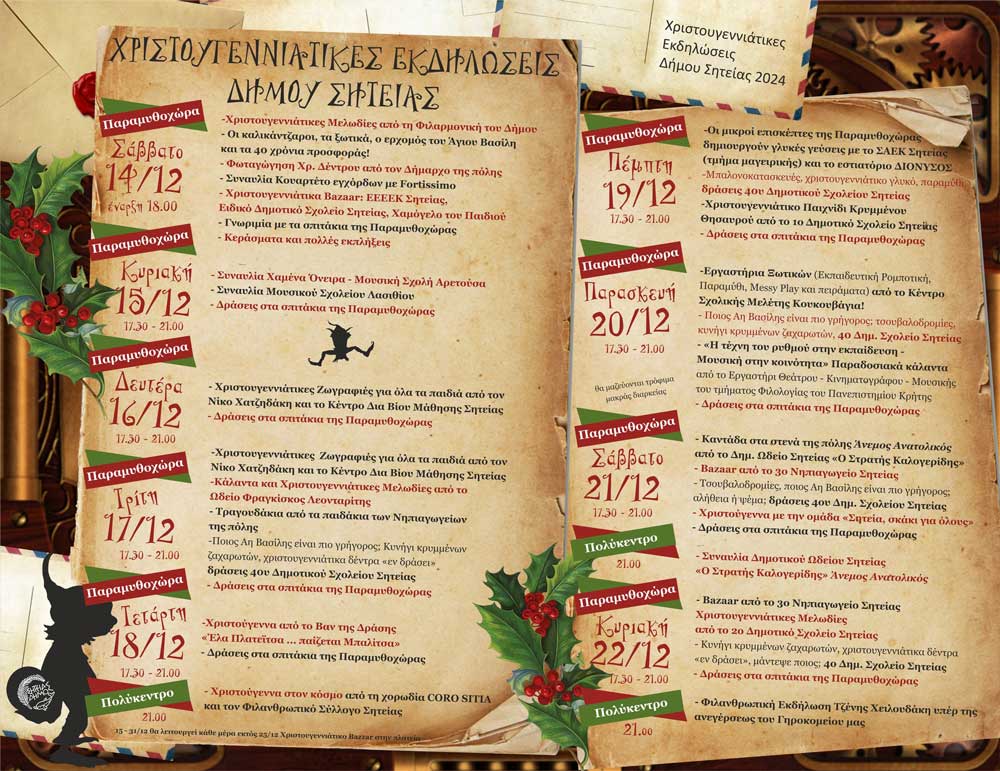 ΧΡΙΣΤΟΥΓΕΝΝΙΑΤΙΚΕΣ ΕΚΔΗΛΩΣΕΙΣ
ΔΗΜΟΥ ΣΗΤΕΙΑΣ
Παραμυθοχώρα
Σάββατο
14/12
έναρξη 18.00
-Χριστουγεννιάτικες Μελωδίες από τη Φιλαρμονική του Δήμου
- Οι καλικάντζαροι, τα ξωτικά, ο ερχομός του Άγιου Βασίλη
και τα 40 χρόνια προσφοράς!
- Φωταγώγηση Χρ. Δέντρου από τον Δήμαρχο της πόλης
- Συναυλία Κουαρτέτο εγχόρδων με Fortissimo
- Χριστουγεννιάτικα Bazaar: ΕΕΕΕΚ Σητείας,
Ειδικό Δημοτικό Σχολείο Σητείας, Χαμόγελο του Παιδιού
- Γνωριμία με τα σπιτάκια της Παραμυθοχώρας
- Κεράσματα και πολλές εκπλήξεις
Παραμυθοχώρα
Κυριακή
15/12
17.30 - 21.00
- Συναυλία Χαμένα Όνειρα - Μουσική Σχολή Αρετούσα
- Συναυλία Μουσικού Σχολείου Λασιθίου
- Δράσεις στα σπιτάκια της Παραμυθοχώρας
Παραμυθοχώρα
Δευτέρα
16/12
17.30 - 21.00
- Χριστουγεννιάτικες Ζωγραφιές για όλα τα παιδιά από τον
Νίκο Χατζηδάκη και το Κέντρο Δια Βίου Μάθησης Σητείας
- Δράσεις στα σπιτάκια της Παραμυθοχώρας
Παραμυθοχώρα
Τρίτη
17/12
17.30 - 21.00
-Χριστουγεννιάτικες Ζωγραφιές για όλα τα παιδιά από τον
Νίκο Χατζηδάκη και το Κέντρο Δια Βίου Μάθησης Σητείας
-Κάλαντα και Χριστουγεννιάτικες Μελωδίες από το
Ωδείο Φραγκίσκος Λεονταρίτης
- Τραγουδάκια από τα παιδάκια των Νηπιαγωγείων
της πόλης
-Ποιος Αη Βασίλης είναι πιο γρήγορος; Κυνήγι κρυμμένων
ζαχαρωτών, χριστουγεννιάτικα δέντρα «εν δράσει»
δράσεις 4ου Δημοτικού Σχολείου Σητείας
- Δράσεις στα σπιτάκια της Παραμυθοχώρας
Παραμυθοχώρα
Τετάρτη
18/12
17.30 - 21.00
-Χριστούγεννα από το Βαν της Δράσης
«Έλα Πλατεϊτσα ... παίζεται Μπαλίτσα»
- Δράσεις στα σπιτάκια της Παραμυθοχώρας
Πολύκεντρο
21.00
- Χριστούγεννα στον κόσμο από τη χορωδία CORO SITIA
και τον Φιλανθρωπικό Σύλλογο Σητείας
15 - 31/12 θα λειτουργεί κάθε μέρα εκτός 25/12 Χριστουγεννιάτικο Bazzar στην πλατεία
Χριστουγεννιάτικες
Εκδηλώσεις
Δήμου Σητείας 2024
Παραμυθοχώρα
Πέμπτη
19/12
17.30 - 21.00
-Οι μικροί επισκέπτες της Παραμυθοχώρας
δημιουργούν γλυκές γεύσεις με το ΣΑΕΚ Σητείας
(τμήμα μαγειρικής) και το εστιατόριο ΔΙΟΝΥΣΟΣ
-Μπαλονοκατασκευές, χριστουγεννιάτικο γλυκό, παραμύθι,
δράσεις 4ου Δημοτικού Σχολείου Σητείας
-Χριστουγεννιάτικο Παιχνίδι Κρυμμένου
Θησαυρού από το 1ο Δημοτικό Σχολείο Σητείας
- Δράσεις στα σπιτάκια της Παραμυθοχώρας
Παραμυθοχώρα
Παρασκευή
20/12
17.30 - 21.00
θα μαζεύονται τρόφιμα
μακράς διαρκείας
-Εργαστήρια Ξωτικών (Εκπαιδευτική Ρομποτική,
Παραμύθι, Messy Play και πειράματα) από το Κέντρο
Σχολικής Μελέτης Κουκουβάγια!
- Ποιος Αη Βασίλης είναι πιο γρήγορος; τσουβαλοδρομίες,
κυνήγι κρυμμένων ζαχαρωτών, 4ο Δημ. Σχολείο Σητείας
- «Η τέχνη του ρυθμού στην εκπαίδευση -
Μουσική στην κοινότητα» Παραδοσιακά κάλαντα
από το Εργαστήρι Θεάτρου - Κινηματογράφου - Μουσικής
του τμήματος Φιλολογίας του Πανεπιστημίου Κρήτης
- Δράσεις στα σπιτάκια της Παραμυθοχώρας
Παραμυθοχώρα
Σάββατο
21/12
17.30 - 21.00
- Καντάδα στα στενά της πόλης Άνεμος Ανατολικός
από το Δημ. Ωδείο Σητείας «Ο Στρατής Καλογερίδης»
- Bazaar από το 3ο Νηπιαγωγείο Σητείας
- Τσουβαλοδρομίες, ποιος Αη Βασίλης είναι πιο γρήγορος;
αλήθεια ή ψέμα; δράσεις 4ου Δημ. Σχολείου Σητείας
- Χριστούγεννα με την ομάδα «Σητεία, σκάκι για όλους»
- Δράσεις στα σπιτάκια της Παραμυθοχώρας
Πολύκεντρο
21.00
- Συναυλία Δημοτικού Ωδείου Σητείας
«Ο Στρατής Καλογερίδης» Άνεμος Ανατολικός
Παραμυθοχώρα
Κυριακή
22/12
17.30 - 21.00
- Bazaar από το 3ο Νηπιαγωγείο Σητείας
Χριστουγεννιάτικες Μελωδίες
από το 2ο Δημοτικό Σχολείο Σητείας
- Κυνήγι κρυμμένων ζαχαρωτών, χριστουγεννιάτικα δέντρα
«εν δράσει», μάντεψε ποιος; 4ο Δημ. Σχολείο Σητείας
- Δράσεις στα σπιτάκια της Παραμυθοχώρας
Πολύκεντρο
21.00
- Φιλανθρωπική Εκδήλωση Τζένης Χειλουδάκη υπέρ της
ανεγέρσεως του Γηροκομείου μας